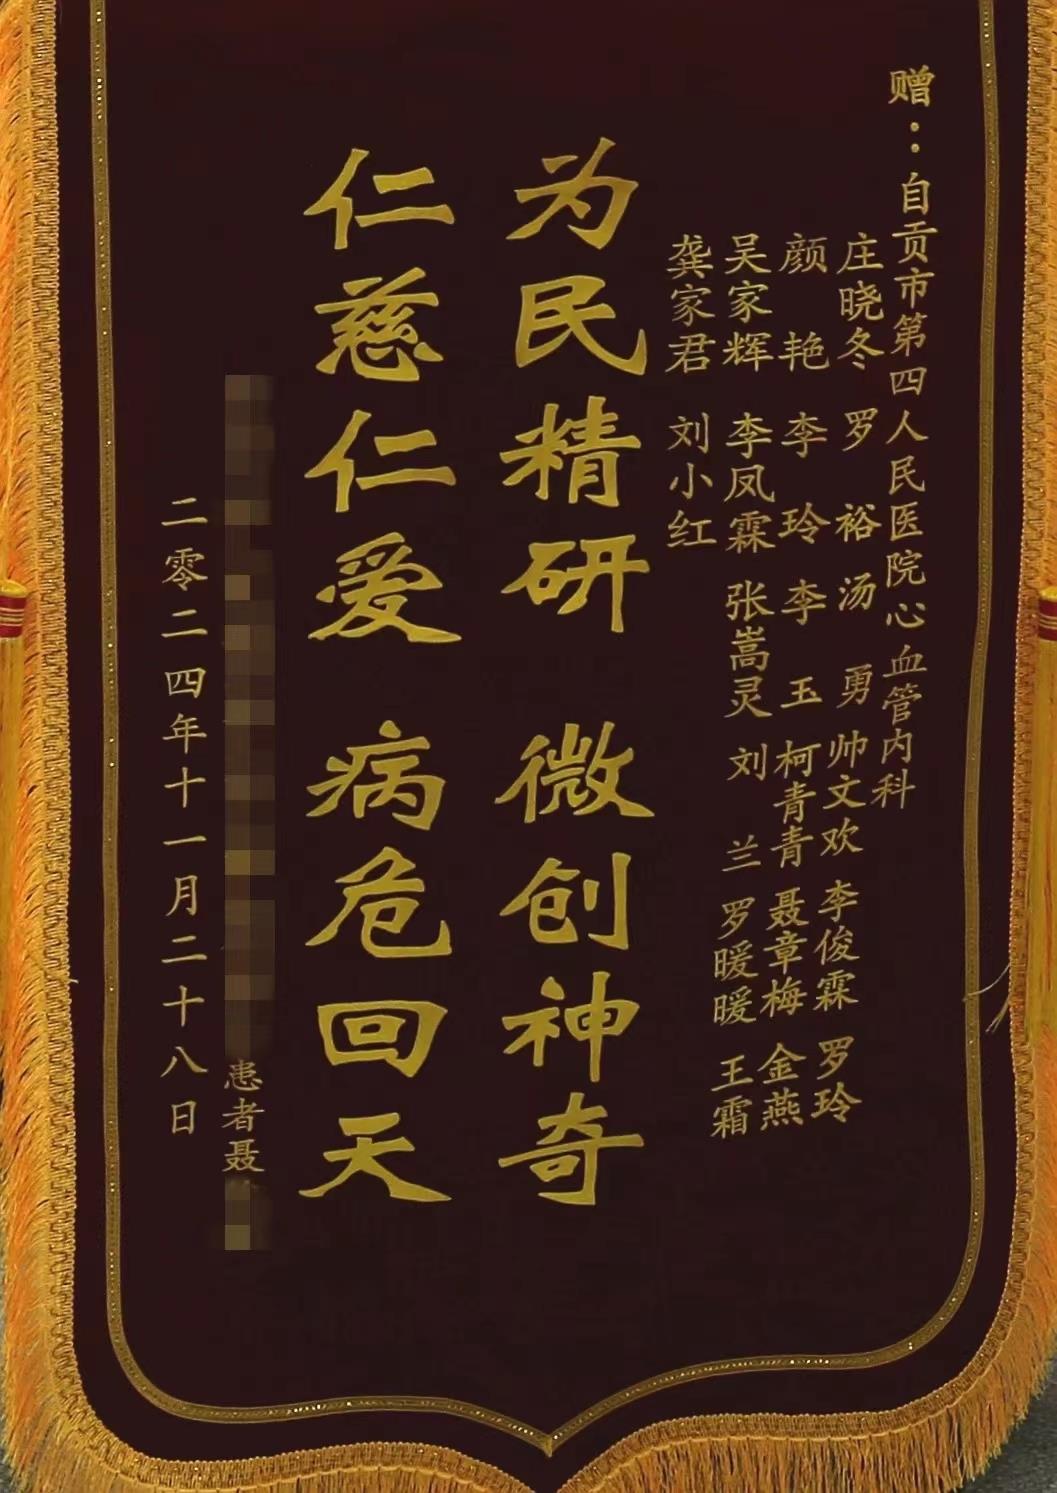 赠：自贡市第四人民医院心血管内科
庄晓冬 罗裕 汤勇 帅文欢 李俊霖 罗玲
颜艳 李玲 李玉 柯青青 聂章梅 金燕
吴家辉 李凤霖 张嵩灵 刘兰 罗暖暖 王霜
龚家君 刘小红
为民精研 微创神奇
仁慈仁爱 病危回天
患者聂
二零二四年十一月二十八日